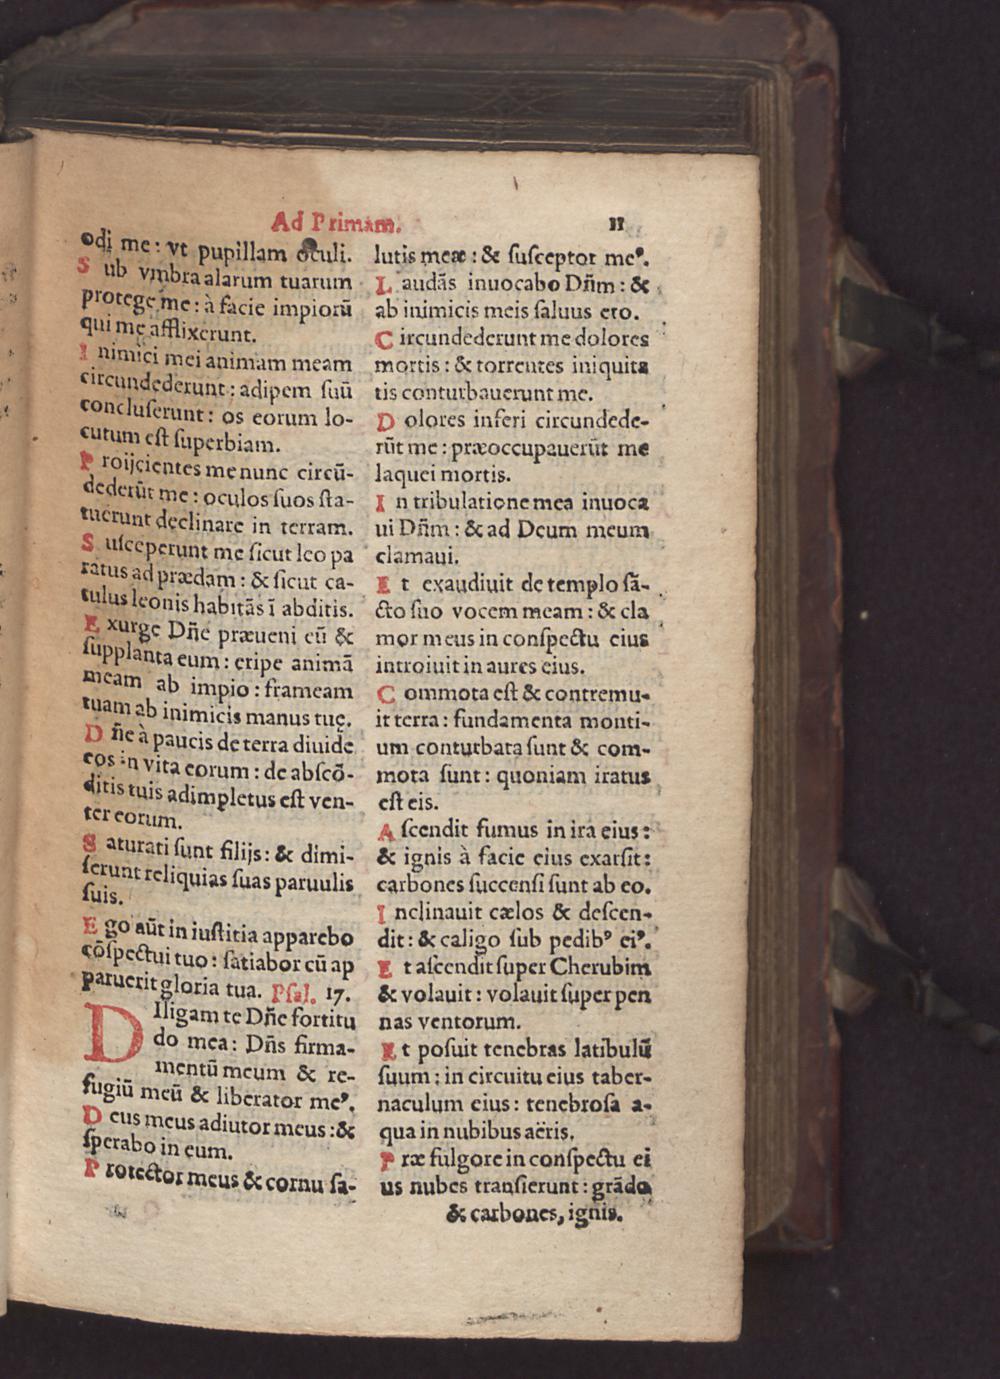 Ad Primam. 11
odi me: vt pupillam oculi.
S ub vmbra alarum tuarum
protege me: à facie impiorū
qui me afflixerunt.
I nimici mei animam meam
circundederunt: adipem suū
concluserunt: os eorum lo-
cutum est superbiam.
P roijcientes me nunc circū-
dederūt me: oculos suos sta-
tuerunt declinare in terram.
S usceperunt me sicut leo pa
ratus ad prædam: & sicut ca-
tulus leonis habitās ī abditis.
E xurge Dñe præueni eū &
supplanta eum: eripe animā
meam ab impio: frameam
tuam ab inimicis manus tuę.
D ñe à paucis de terra diuide
eos in vita eorum: de abscō-
ditis tuis adimpletus est ven-
ter eorum.
S aturati sunt filijs: & dimi-
serunt reliquias suas paruulis
suis.
E go aūt in iustitia apparebo
cōspectui tuo: satiabor cū ap
paruerit gloria tua. Psal. 17.
DIligam te Dñe fortitu
do mea: Dñs firma-
mentū meum & re-
fugiū meū & liberator meꝰ.
D eus meus adiutor meus: &
sperabo in eum.
P rotector meus & cornu sa-
lutis meæ: & susceptor meꝰ.
L audās inuocabo Dñm: &
ab inimicis meis saluus ero.
C ircundederunt me dolores
mortis: & torrentes iniquita
tis conturbauerunt me.
D olores inferi circundede-
rūt me: præoccupauerūt me
laquei mortis.
I n tribulatione mea inuoca
ui Dñm: & ad Deum meum
clamaui.
E t exaudiuit de templo sā-
cto suo vocem meam: & cla
mor meus in conspectu eius
introiuit in aures eius.
C ommota est & contremu-
it terra: fundamenta monti-
um conturbata sunt & com-
mota sunt: quoniam iratus
est eis.
A scendit fumus in ira eius:
& ignis à facie eius exarsit:
carbones succensi sunt ab eo.
I nclinauit cælos & descen-
dit: & caligo sub pedibꝰ eiꝰ.
E t ascendit super Cherubim
& volauit: volauit super pen
nas ventorum.
E t posuit tenebras latibulū
suum: in circuitu eius taber-
naculum eius: tenebrosa a-
qua in nubibus aëris.
P ræ fulgore in conspectu ei
us nubes transierunt: grādo
& carbones, ignis.